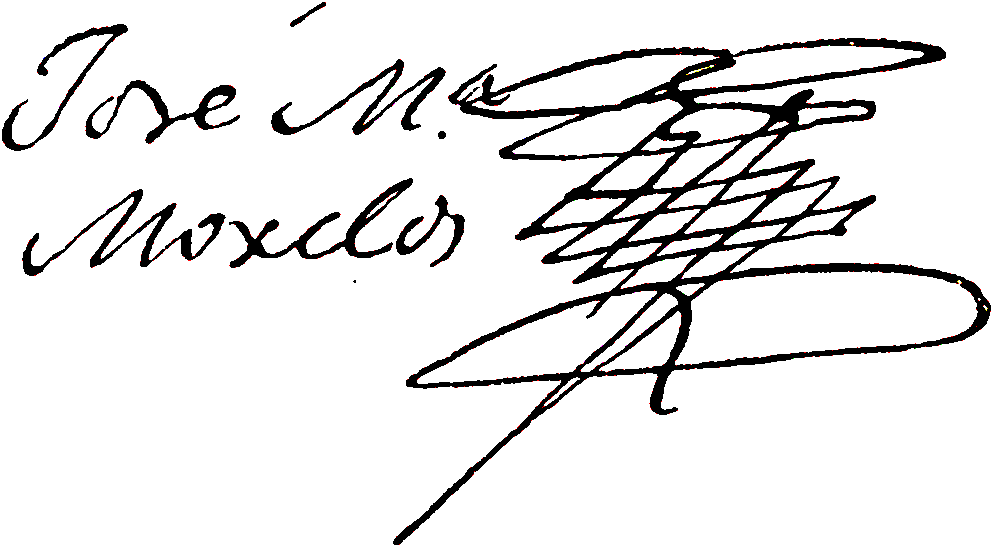 José M.ª
Morelos